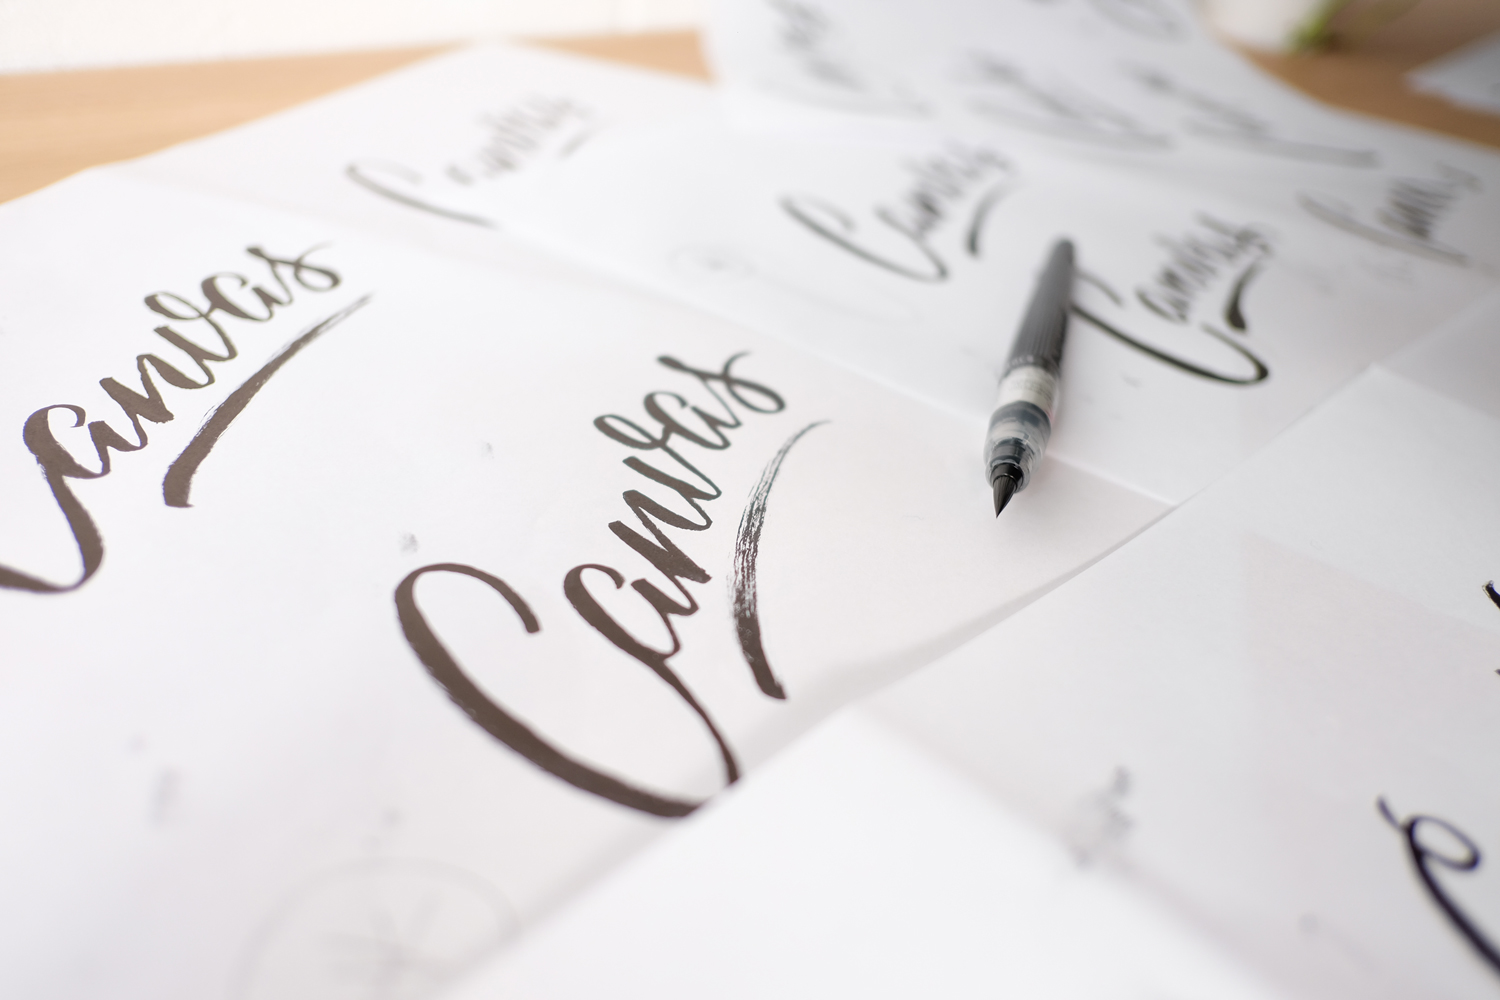 Canvas
Canvas
Canvas
Canvas
Canvas